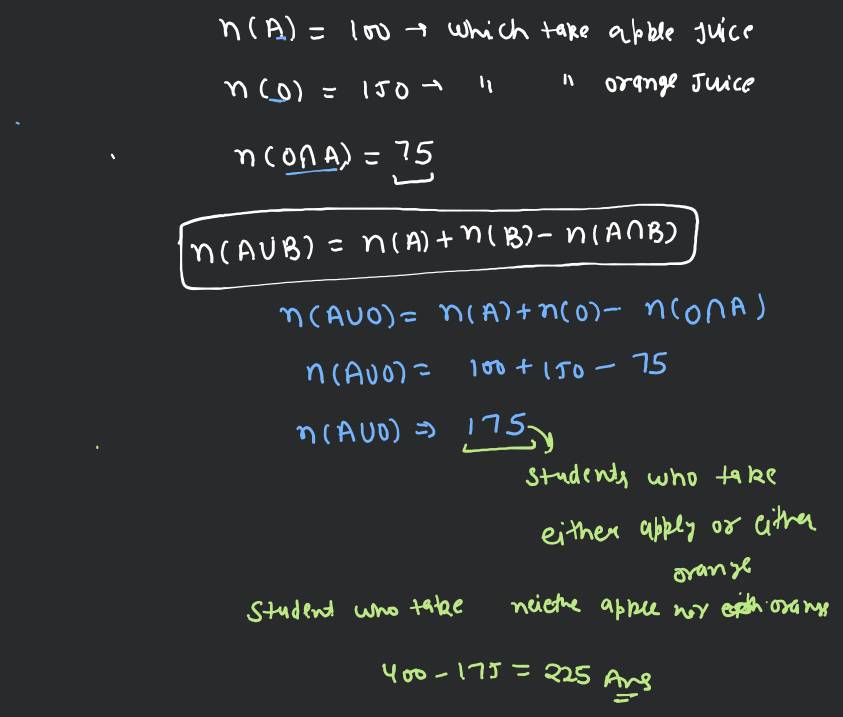 n(A) = 100 → which take apple juice
n(O) = 150 → " " orange Juice
n(O∩A) = 75
n(A∪B) = n(A)+n(B)- n(A∩B)
n(A∪O)= n(A)+n(O)- n(O∩A)
n(A∪O)= 100+150-75
n(A∪O) ⇒ 175
Students who take
either apply or either
orange
Student who take apple nor orange
400-175 = 225 Ans